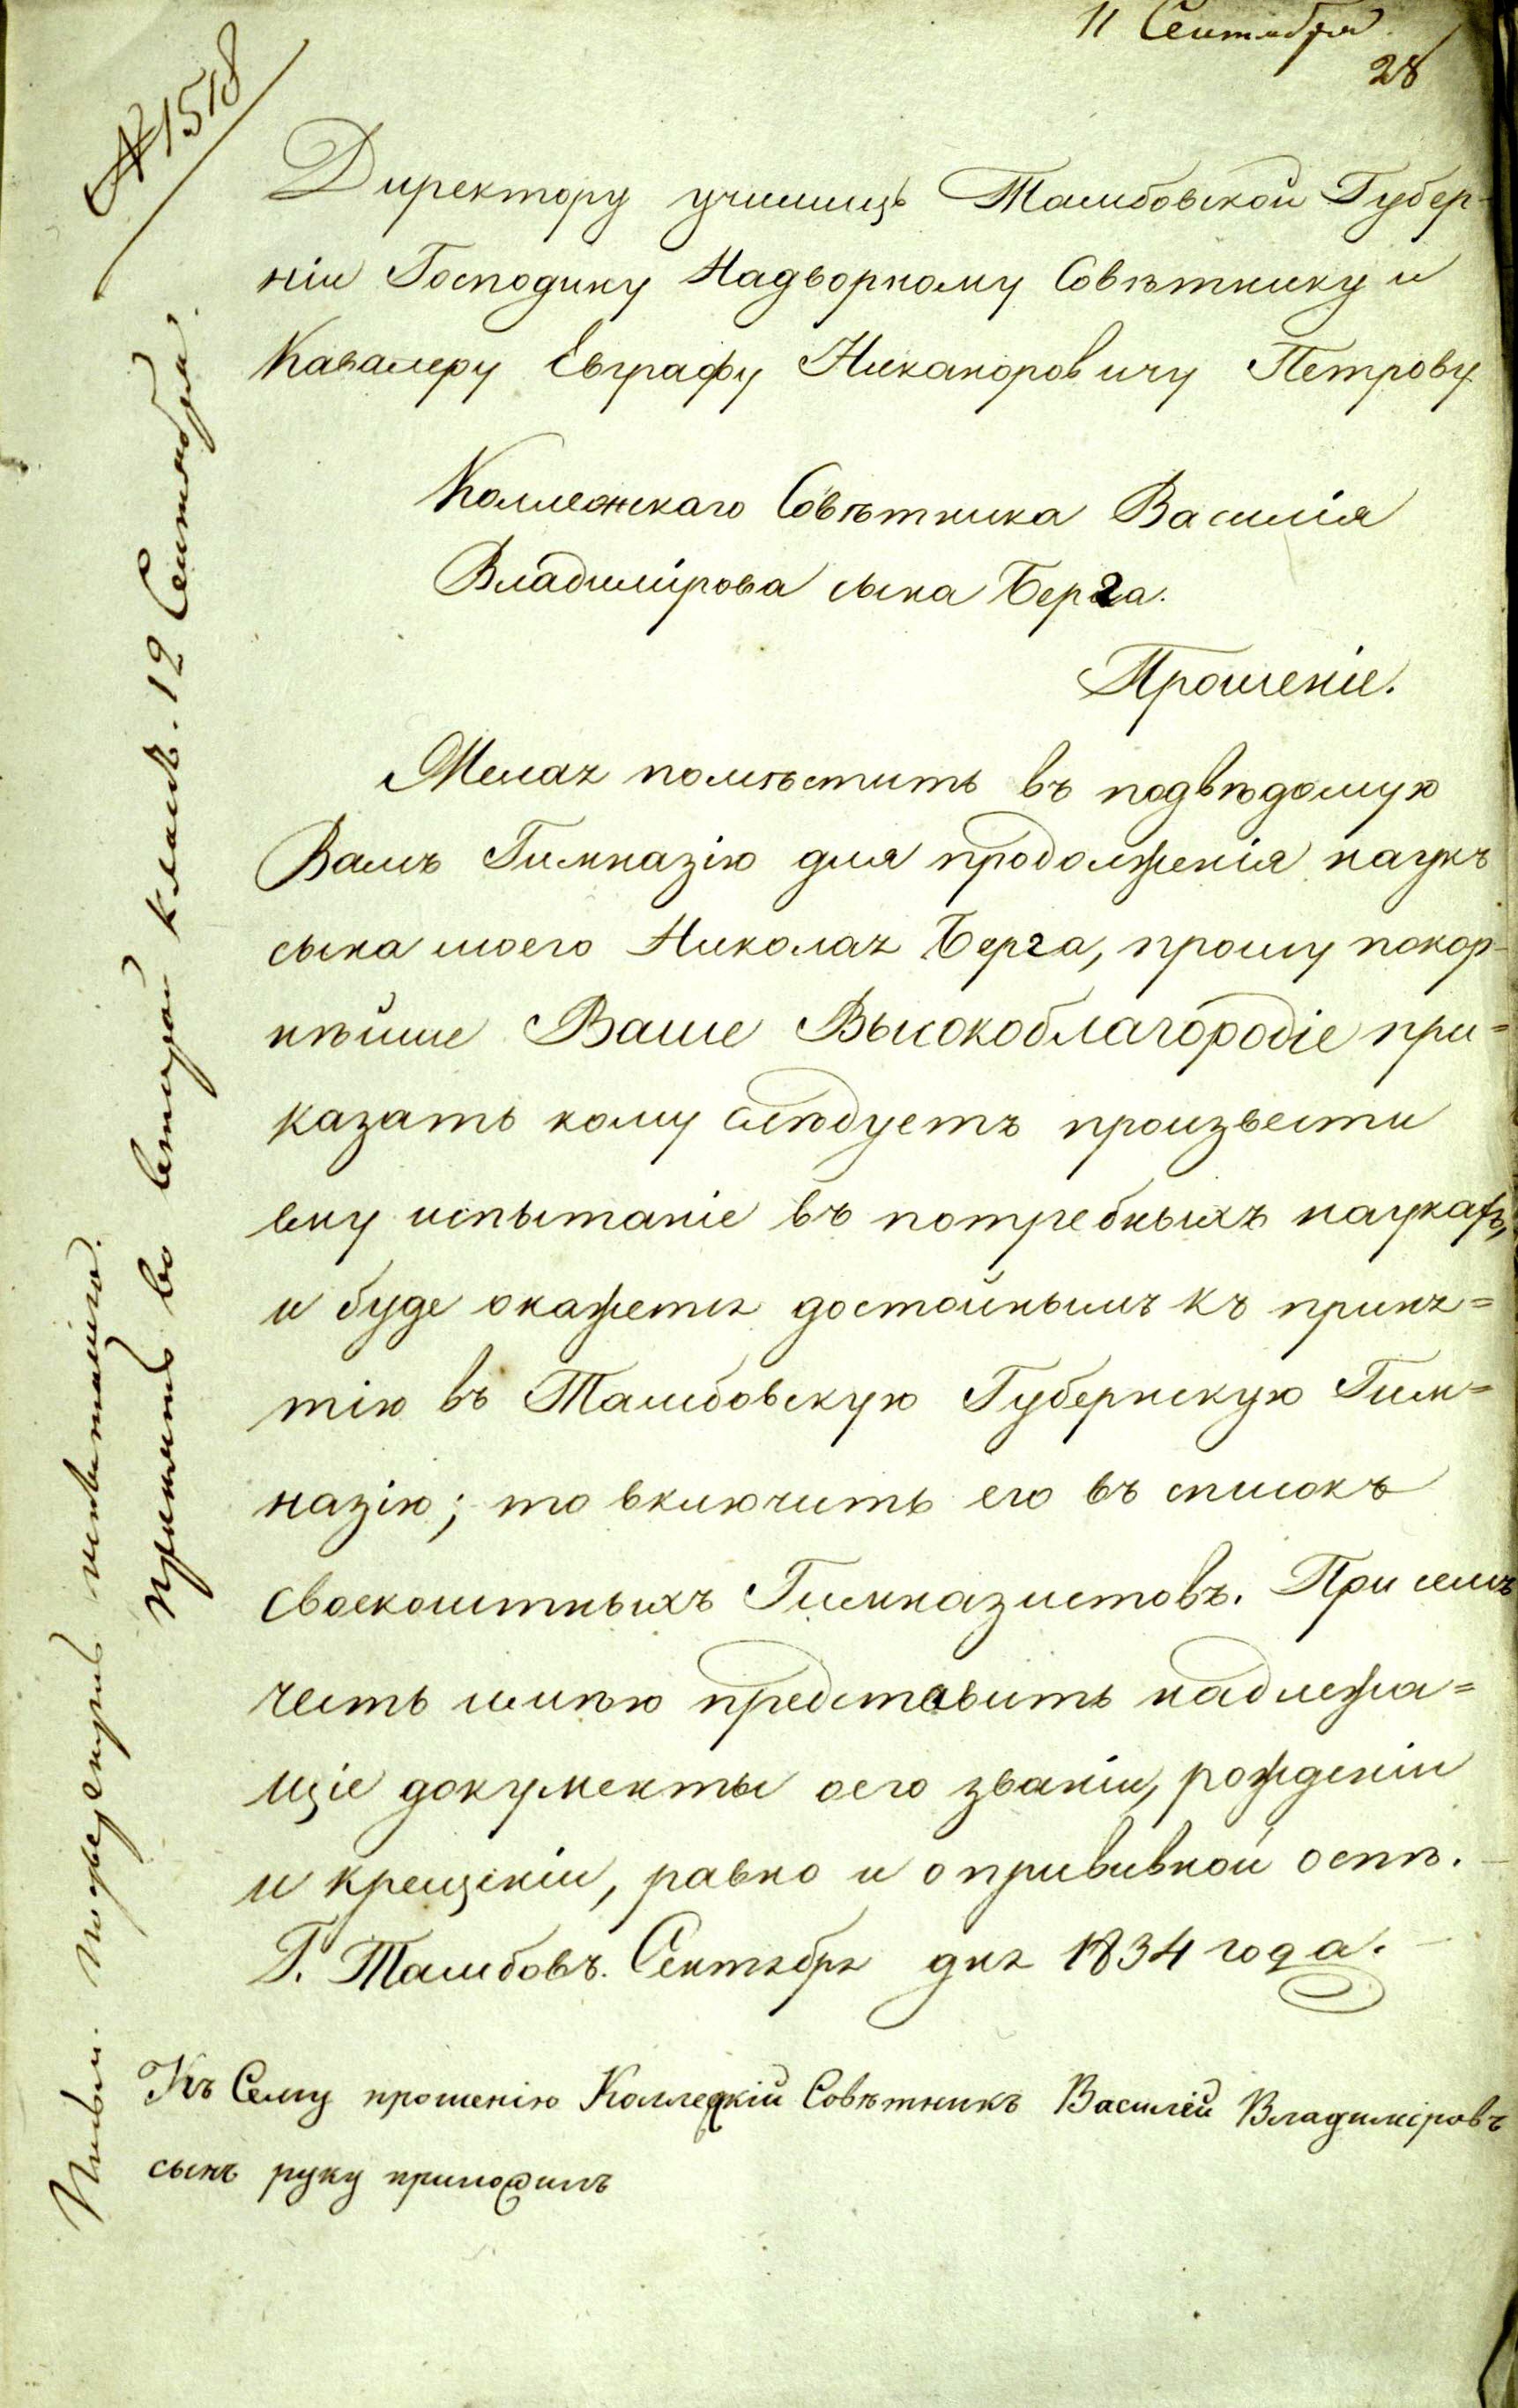 11 Сентября.
28
№ 1518
Директору училищъ Тамбовской Губер-
ніи Господину Надворному Совѣтнику и
Кавалеру Евграфу Никаноровичу Петрову
Коллежскаго Совѣтника Василія
Владимірова сына Берга.
Прошеніе.
Желая помѣстить въ подвѣдомую
Вамъ Гимназію для продолженія наукъ
сына моего Николая Берга, прошу покор-
нѣйше Ваше Высокоблагородіе при=
казать кому слѣдуетъ произвести
ему испытаніе въ потребныхъ наукахъ,
и буде окажется достойнымъ къ приня=
тію въ Тамбовскую Губернскую Гим=
назію; то включить его въ списокъ
своекоштныхъ Гимназистовъ. При семъ
честь имѣю представить надлежа=
щіе документы о его званіи, рожденіи
и крещеніи, равно и о прививной оспѣ.
Г. Тамбовъ. Сентября дня 1834 года.
Къ Сему прошенію Коллежскій Совѣтникъ Василій Владиміровъ
сынъ руку приложилъ
подвергнуть испытанію.
Принять во второй классъ. 12 Сентября.